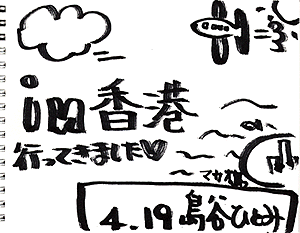 in香港
行ってきました♡
4.19 島谷ひとみ